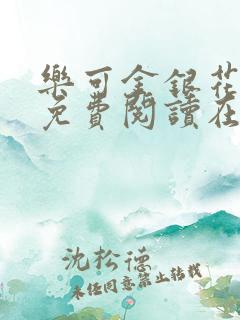 樂可金銀花
免費閱讀在
沈松德
未经同意禁止转载